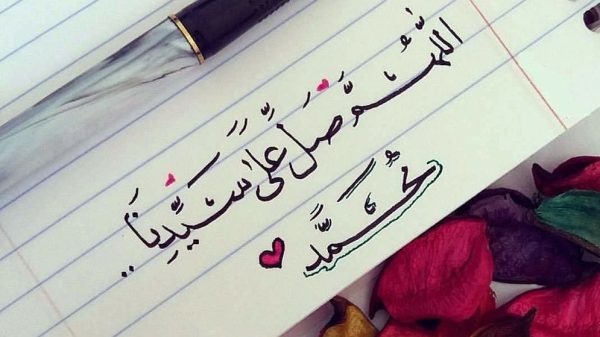 اللَّهُمَّ صَلِّ عَلَى سَيِّدِنَا ..
مُحَمَّد